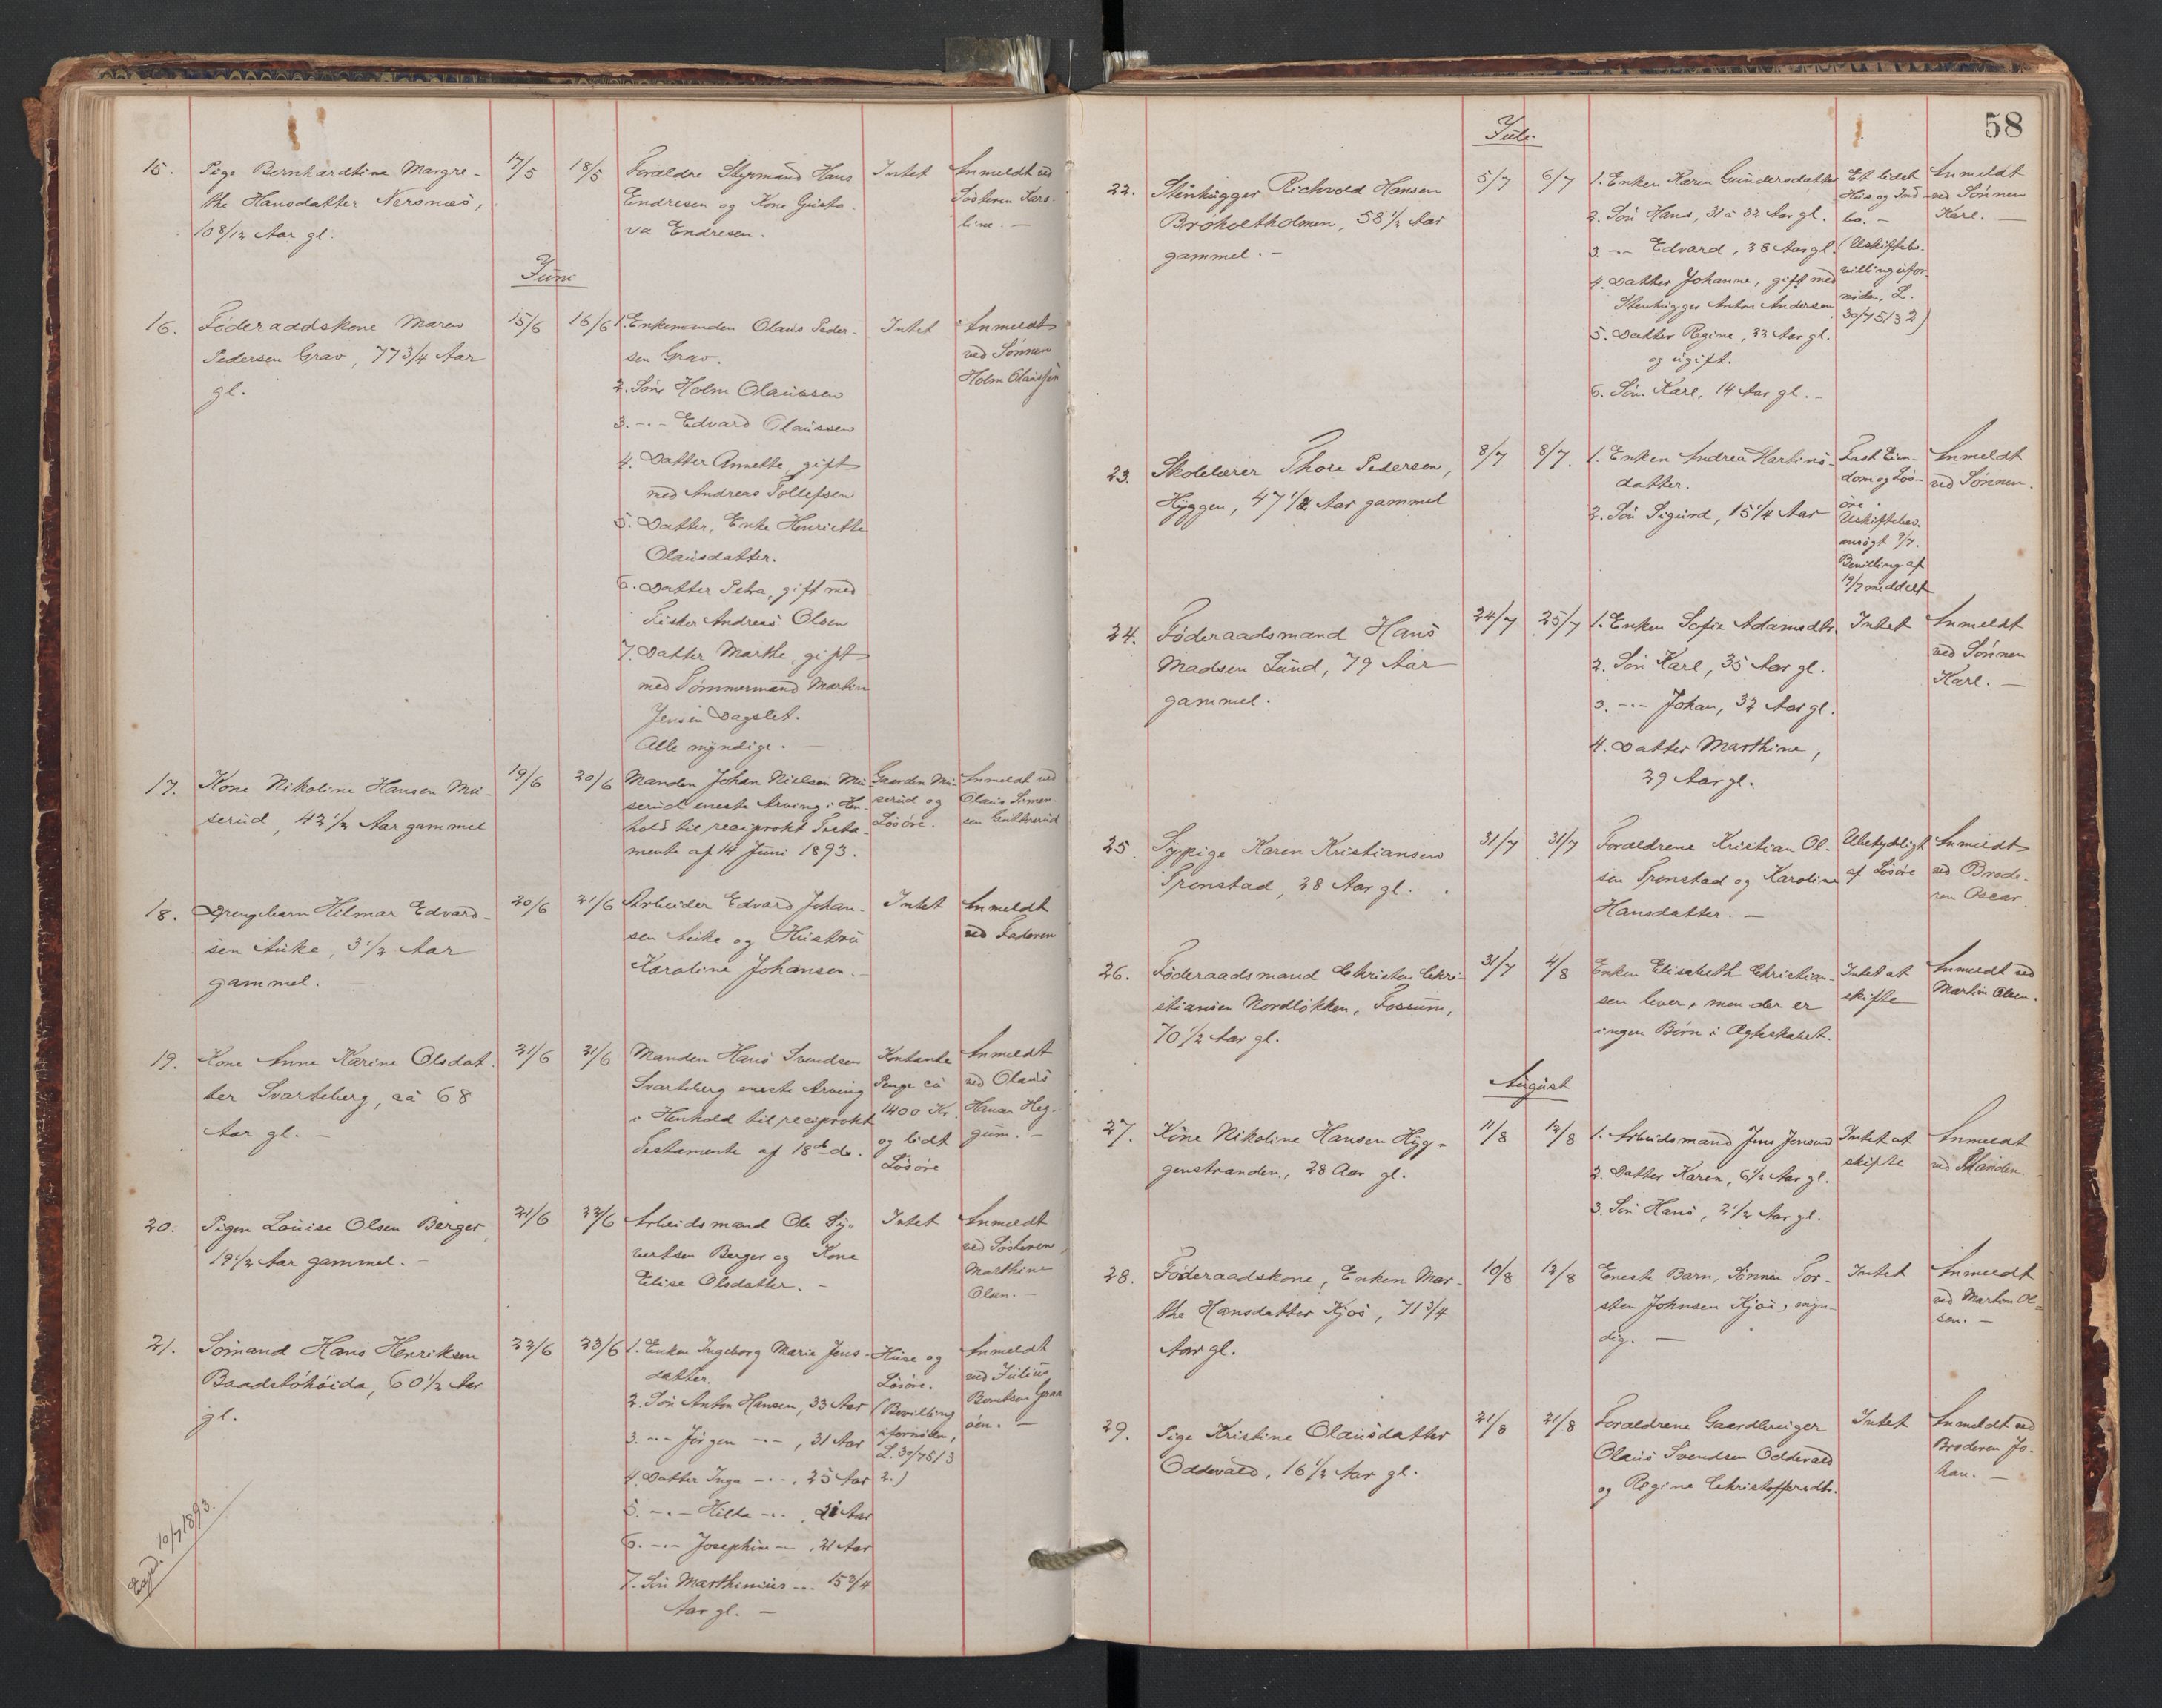 15. Pige Bernhardtine Margre-
the Hansdatter Nersnæs,
10 8/12 Aar gl.
17/5
18/5
Forældre Styrmand Hans
Endresen og Kone Gusta-
va Endresen.
Intet
Anmeldt ved
Søsteren Karo-
line. —
Juni
16. Føderaadskone Maren
Pedersen Grav, 77 3/4 Aar
gl.
15/6
16/6
1. Enkemanden Olaus Peder-
sen Grav.
2. Søn Holm Olaussen
3. -"- Edvard Olaussen
4. Datter Annette, gift
med Andreas Tollefsen
5. Datter, Enke Henriette
Olausdatter.
6. Datter Petra, gift med
Fisker Andreas Olsen
7. Datter Marthe, gift
med Tømmermand Martin
Jensen Dagslet.
Alle myndige. —
Intet
Anmeldt
ved Sønnen
Holm Olaussen
17. Kone Nikoline Hansen Mu-
serud, 42 1/2 Aar gammel
19/6
20/6
Manden Johan Nielsen Mu-
serud eneste Arving i Hen-
hold til reciprokt Testa-
mente af 14 Juni 1893.
Gaarden Mu-
serud og
Løsøre.
Anmeldt ved
Olaus Simen-
sen Gulderud
18. Drengebarn Hilmar Edvard-
sen Auke, 3 1/2 Aar
gammel.
20/6
21/6
Arbeider Edvard Johan-
sen Auke og Hustru
Karoline Johansen. —
Intet
Anmeldt
ved Faderen
19. Kone Anne Karine Olsdat-
ter Svarteberg, ca 68
Aar gl. —
21/6
21/6
Manden Hans Svendsen
Svarteberg eneste Arving
i Henhold til reciprokt
Testamente af 18de ds.
Kontante
Penge ca
1400 Kr.
og lidt
Løsøre
Anmeldt
ved Olaus
Hansen Heg-
gum. —
20. Pigen Louise Olsen Berger,
19 1/2 Aar gammel. —
21/6
22/6
Arbeidsmand Ole Sy-
vertsen Berger og Kone
Elise Olsdatter. —
Intet
Anmeldt
ved Søsteren
Marthine
Olsen. —
21. Sømand Hans Henriksen
Baadstøhøida, 60 1/2 Aar
gl.
22/6
23/6
1. Enken Ingeborg Marie Jens-
datter.
2. Søn Anton Hansen, 33 Aar
3. -"- Jørgen -"-, 31 Aar
4. Datter Inga -"-, 25 Aar
5. -"- Hilda -"-, 21 Aar
6. -"- Josephine -"-, 21 Aar
7. Søn Marthinius -"- 15 3/4
Aar gl. —
Huse og
Løsøre.
(Bevilling
ufornøden,
L. 30/7 51 §
2.)
Anmeldt
ved Julius
Berntsen Graa-
øen. —
Expd. 10/7 1893.
58
Juli
22. Stenhugger Richvold Hansen
Brøholtholmen, 58 1/2 Aar
gammel. —
5/7
6/7
1. Enken Karen Gundersdatter
2. Søn Hans, 31 a 32 Aar gl.
3. -"- Edvard, 28 Aar gl.
4. Datter Johanne, gift med
Stenhugger Anton Andersen
5. Datter Regine, 22 Aar gl.
og ugift.
6. Søn Karl, 14 Aar gl. —
Et lidet
Hus og Ind-
bo. —
(Uskiftebe-
villing ufor-
nøden, L.
30/7 51 § 2)
Anmeldt
ved Sønnen
Karl. —
23. Skolelærer Thore Pedersen,
Hyggen, 47 1/2 Aar gammel
8/7
8/7.
1. Enken Andrea Martins-
datter.
2. Søn Sigurd, 15 1/4 Aar
Fast Eien-
dom og Løs-
øre.
Uskiftebev.
ansøgt 9/7.
Bevilling af
19/7 meddelt
Anmeldt
ved Sønnen.
24. Føderaadsmand Hans
Madsen Lund, 79 Aar
gammel.
24/7
25/7
1. Enken Sofie Adamsdtr.
2. Søn Karl, 35 Aar gl.
3. -"- Johan, 32 Aar gl.
4. Datter Marthine,
29 Aar gl.
Intet
Anmeldt
ved Sønnen
Karl. —
25. Sypige Karen Kristiansen
Trenstad, 28 Aar gl.
31/7
31/7
Forældrene Kristian Ol-
sen Trenstad og Karoline
Hansdatter. —
Ubetydeligt
af Løsøre
Anmeldt
ved Brode-
ren Oscar.
26. Føderaadsmand Christen Chri-
stiansen Nordløkken, Fossum,
70 1/2 Aar gl.
31/7
4/8
Enken Elisabeth Christian-
sen lever, men der er
ingen Børn i Ægteskabet.
Intet at
skifte
Anmeldt ved
Martin Olsen.
August
27. Kone Nikoline Hansen Hyg-
genstranden, 28 Aar gl.
11/8
12/8
1. Arbeidsmand Jens Jensen
2. Datter Karen, 6 1/2 Aar gl.
3. Søn Hans, 2 1/2 Aar gl.
Intet at
skifte
Anmeldt
ved Manden.
28. Føderaadskone, Enken Mar-
the Hansdatter Kjos, 71 3/4
Aar gl.
10/8
12/8
Eneste Barn, Sønnen Tor-
sten Johnsen Kjos, myn-
dig. —
Intet
Anmeldt
ved Martin Ol-
sen. —
29. Pige Kristine Olausdatter
Oddevald, 16 1/2 Aar gl.
21/8
21/8
Forældrene Gaardbruger
Olaus Svendsen Oddevald
og Regine Christoffersdtr.
Intet
Anmeldt ved
Broderen Jo-
han. —